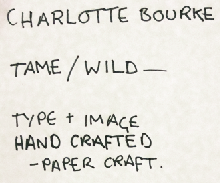 CHARLOTTE BOURKE
TAME/WILD —
TYPE + IMAGE
HAND CRAFTED
- PAPER CRAFT.